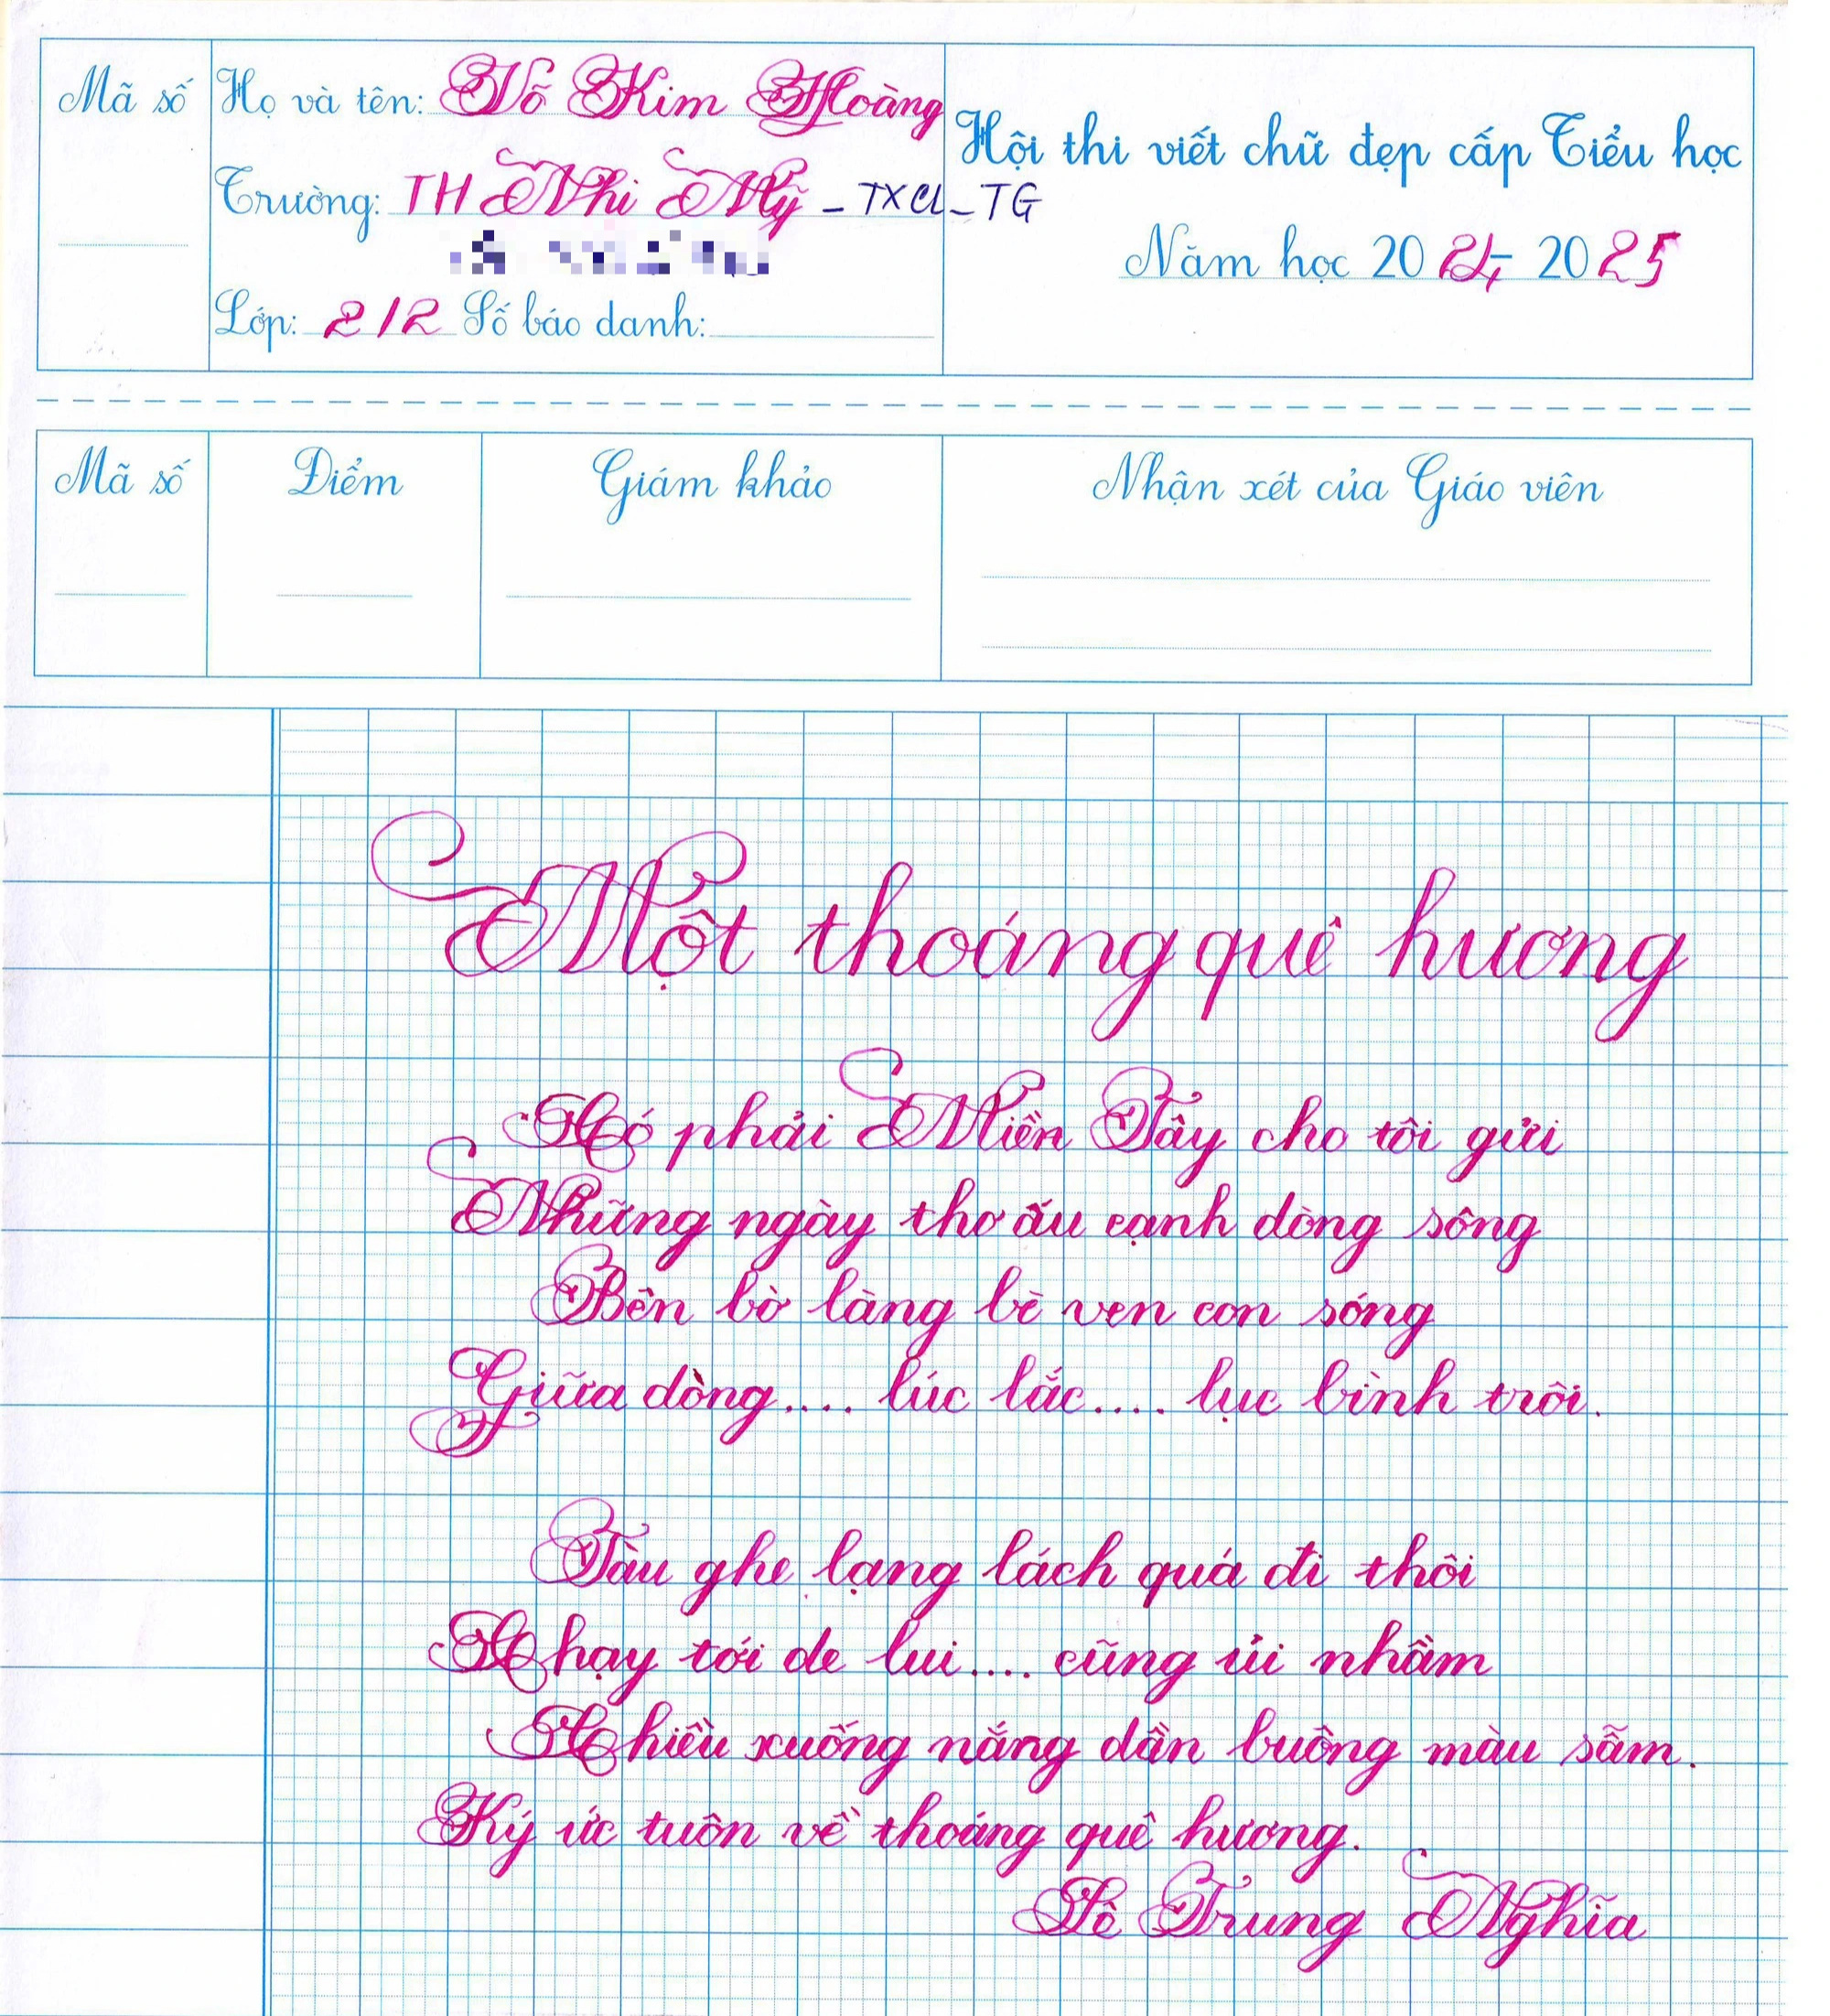 Mã số
Họ và tên: Võ Kim Hoàng
Trường: TH Nhi Mỹ - TXCL - TG
Lớp: 2/2 Số báo danh:
Hội thi viết chữ đẹp cấp Tiểu học
Năm học 2024 - 2025
Mã số
Điểm
Giám khảo
Nhận xét của Giáo viên
Một thoáng quê hương
Có phải Miền Tây cho tôi gửi
Những ngày thơ ấu cạnh dòng sông
Bên bờ làng bè ven con sóng
Giữa dòng.... lúc lắc.... lục bình trôi.
Tàu ghe lạng lách quá đi thôi
Chạy tới de lui.... cũng ủi nhầm
Chiều xuống nắng dần buông màu sẫm.
Ký ức tuôn về thoáng quê hương.
Lê Trung Nghĩa